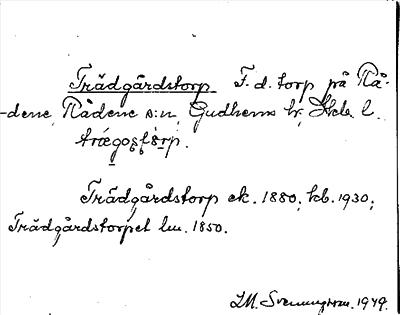 Trädgårdstorp F. d. torp på Rå-
-dene, Rådene s:n, Gudhems hr, Skb. l.
Trädgårdstorp ek. 1880, kb. 1930;
Trädgårdstorpet lm. 1850.
I.M. Svenungsson. 1949.